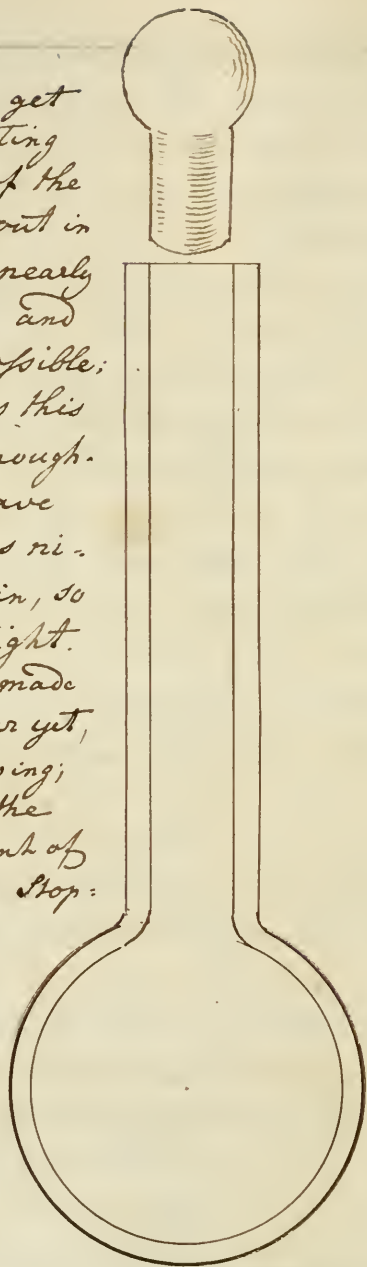 get
ting
of the
out in
nearly
and
possible;
s this
nough-
ave
s ni-
in, so
ight.
made
r yet,
ping;
the
nt of
Stop-